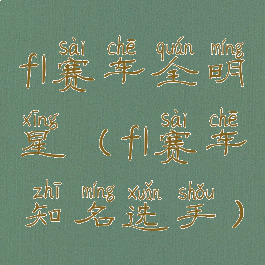 sài chē quán míng
fl赛车全明
xīng sài chē
星(fl赛车
zhī míng xuǎn shǒu
知名选手)